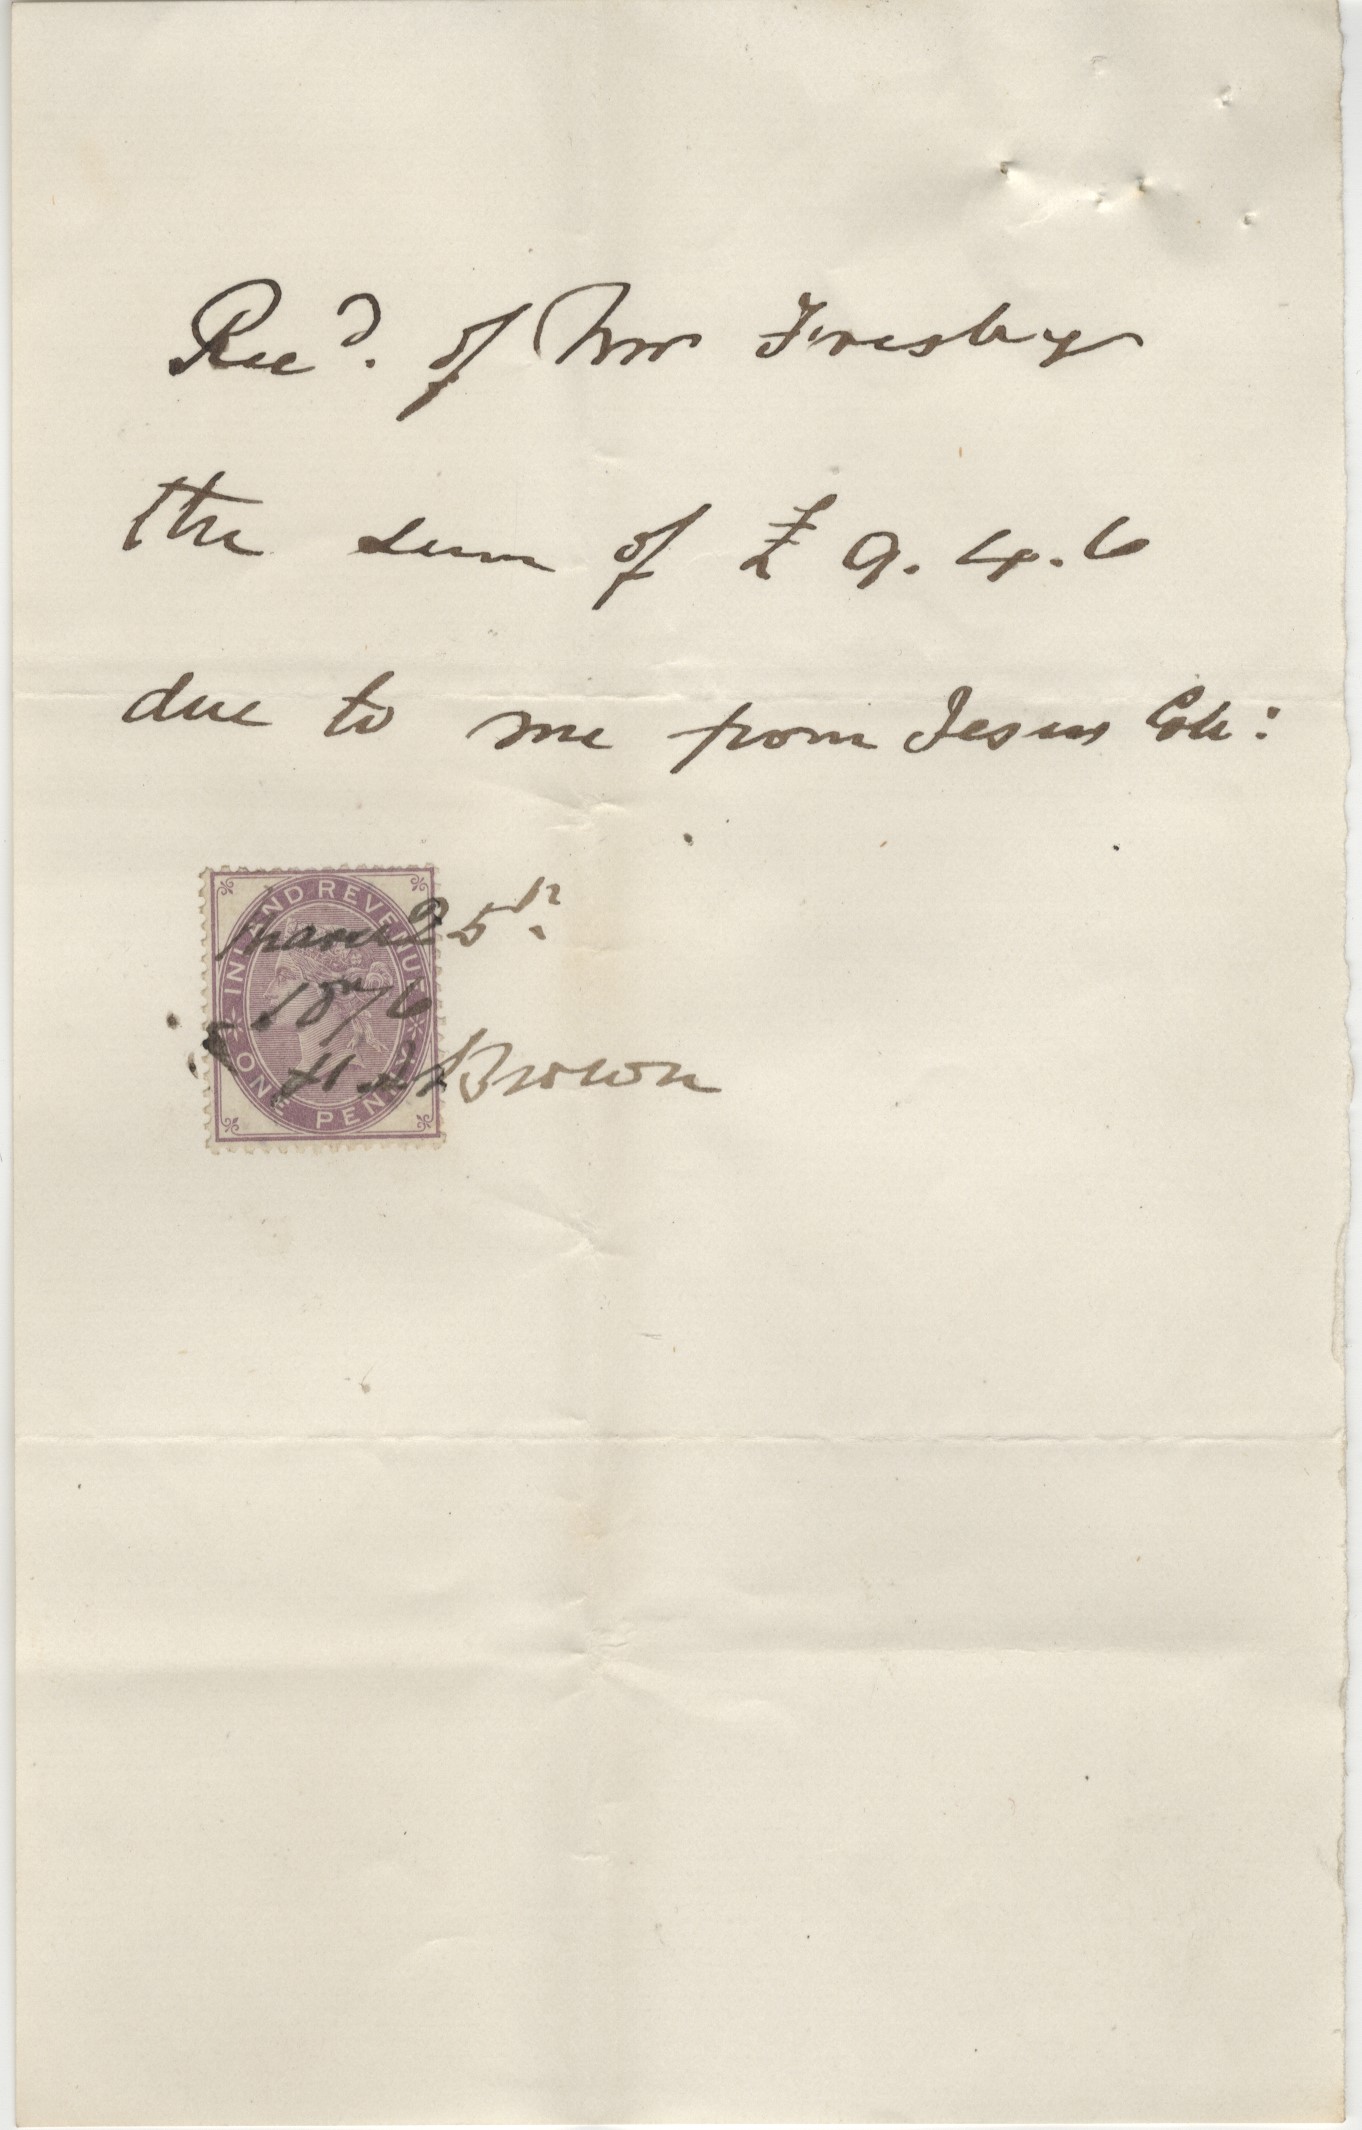 Recd. of Mr Fresby
the sum of £ 9. 4. 6
due to me from Jesus Coll:
INLAND REVENUE
ONE PENNY
March 25th
1876
Brown